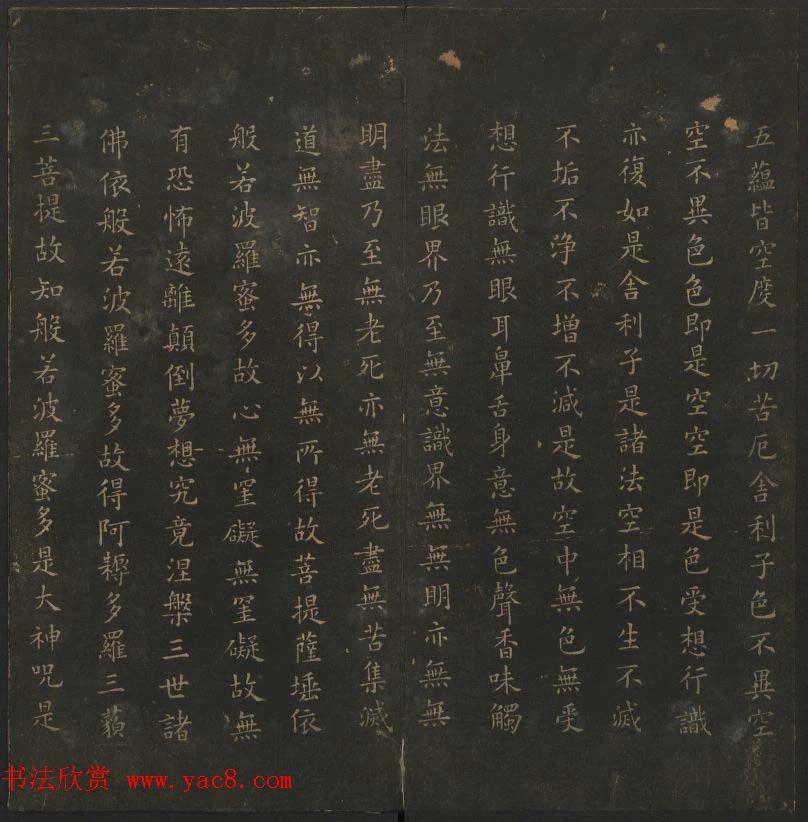 五蘊皆空度一切苦厄舍利子色不異空
空不異色色即是空空即是色受想行識
亦復如是舍利子是諸法空相不生不滅
不垢不淨不增不減是故空中無色無受
想行識無眼耳鼻舌身意無色聲香味觸
法無眼界乃至無意識界無無明亦無無
明盡乃至無老死亦無老死盡無苦集滅
道無智亦無得以無所得故菩提薩埵依
般若波羅蜜多故心無罣礙無罣礙故無
有恐怖遠離顛倒夢想究竟涅槃三世諸
佛依般若波羅蜜多故得阿耨多羅三藐
三菩提故知般若波羅蜜多是大神咒是
书法欣赏 www.yac8.com